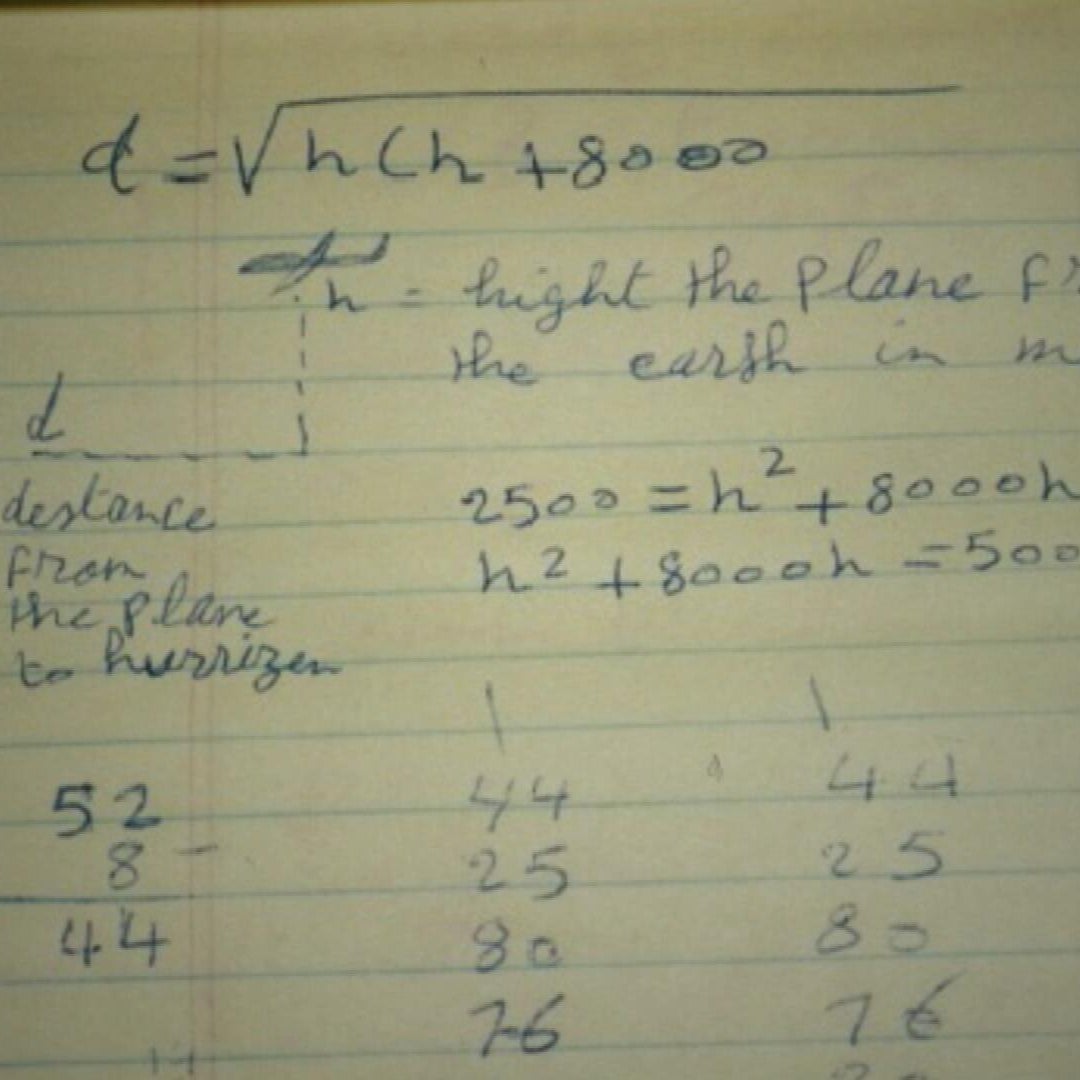 d = √h(h+8000
h = hight the Plane
the earth in m
d
destance
from
the plane
to hurrizen
2500 = h² + 8000h
h² + 8000h = 500
52
8 -
44
44 44
25 25
80 80
76 76